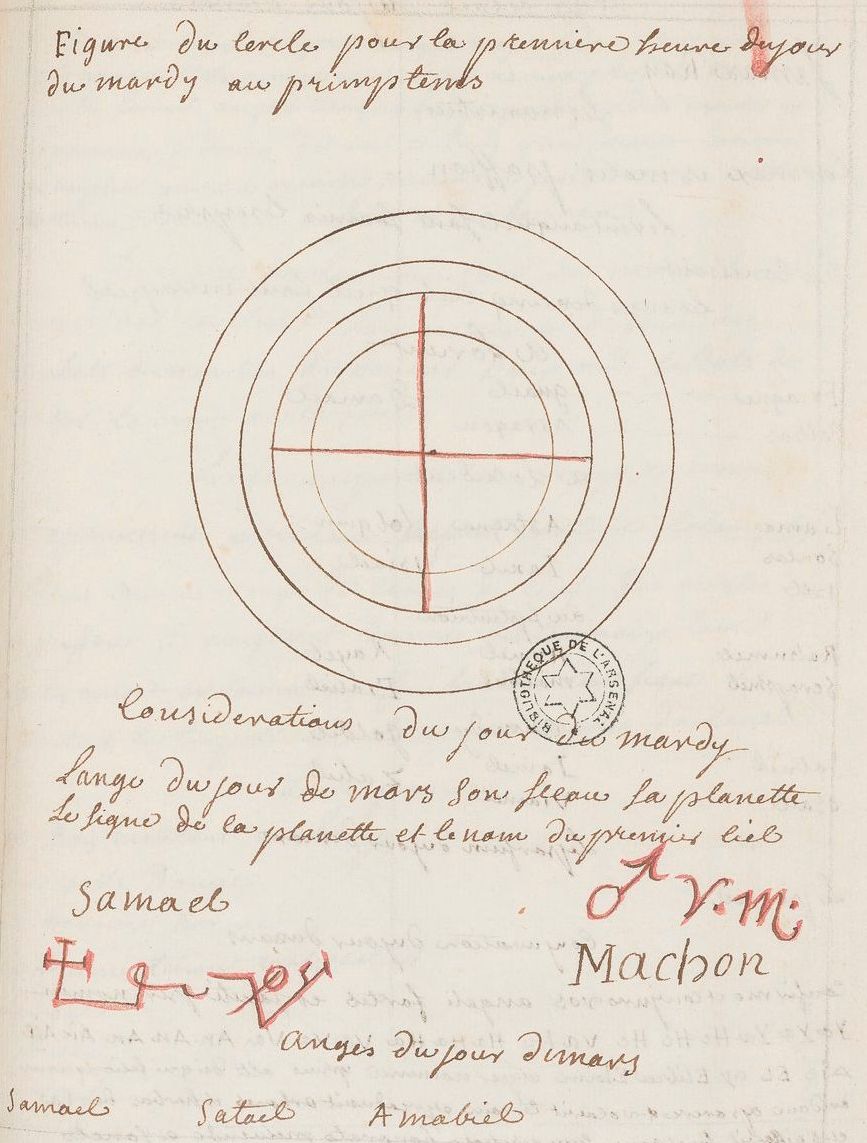 Figure du Cercle pour la premiere heure du jour
du mardy au primptems
BIBLIOTHEQUE DE L'ARSENAL
Considerations du jour du mardy
Lange du jour de mars Son sceau sa planette
Le signe de la planette et le nom du premier Ciel
Samael
♂ V. M.
Machon
anges du jour de mars
Samael Satael Amabiel